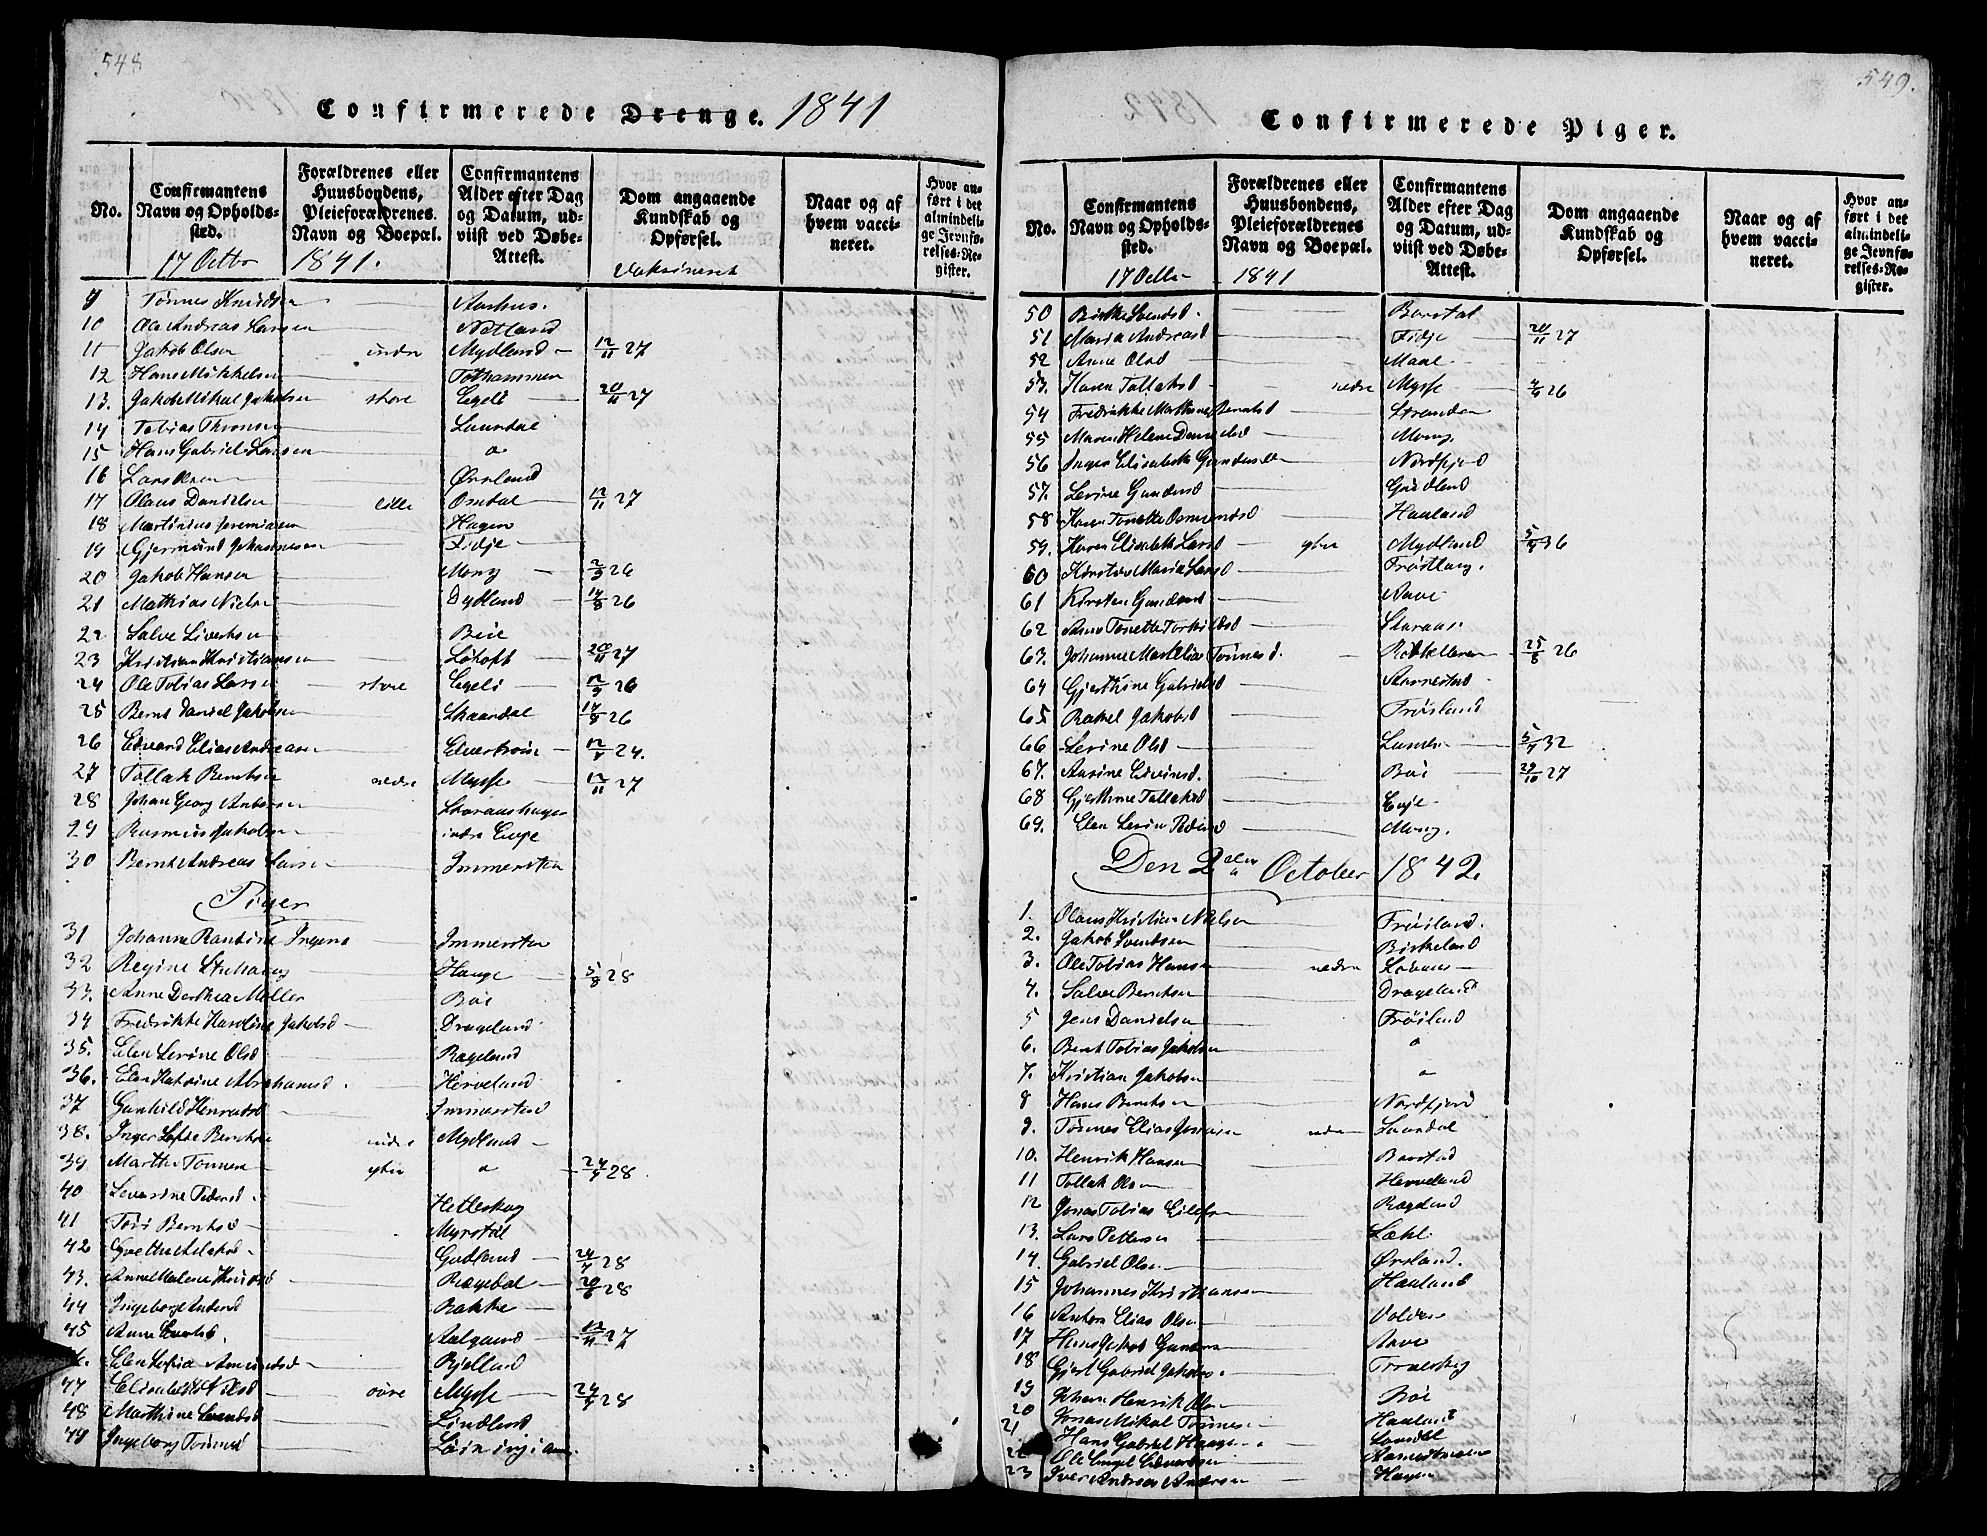 548
Confirmerede Drenge. 1841
No.
Confirmantens Navn og Opholdssted.
Forældrenes eller Huusbondens, Pleieforældrenes Navn og Boepæl.
Confirmantens Alder efter Dag og Datum, udviist ved Døbe-Attest.
Dom angaaende Kundskab og Opførsel.
Naar og af hvem vaccineret.
Hvor anført i det almindelige Jevnførelses-Register.
17 Octbr 1841. Vaksineret
9 Tønnes Knudsen Aarhus.
10 Ole Andreas Larsen Netland
11 Jakob Olsen indre Mydland 12/11 27
12 Hans Mikkelsen
13. Jakob Mikal Jakobsen store Egeli 20/11 27
14 Tobias Thronsen Laundal
15 Hans Gabriel Larsen
16 Lars Olsen Ørsland
17 Olaus Danielsen lille Omdal 12/11 27
18 Martinius Jeremiasen Hagen
19 Gjermund Johannesen Fidje
20 Jakob Hansen Mong 2/9 26
21 Mathias Nielsen Dydland 14/8 26
22 Salve Sivertsen Bøie
23 Kristian Kristiansen 20/11 27
24 Ole Tobias Larsen store Egeli 12/9 26
25 Bernt Daniel Jakobsen Skaardal 14/9 26
26 Edvard Elias Andreasen 12/7 24.
27 Tollak Berntsen nedre Mysse 12/11 27
28 Johan Georg
29 Rasmus Jakobsen indre Eeye
30 Bernt Andreas Larsen Immerstein
Piger
31 Johanne Rantine Immerstein
32 Regine Hauge 5/8 28
33. Anne Dorthea Møller Bøe
34 Fredrikke Karoline Jakobsd Drageland
35. Elen Severine Olsd Rageland
36. Elen Katrine Abrahamsd. Herveland
37 Gunhild Immerstein
38. Inger Sofie Berntsen indre Mydland
39 Marthe Tønnesen ytre 24/9 28
40 Severine Pedersd. Hetleskog
41 Tori Berntsd Myrstøl
42 Gudland 24/7 28
43. Anne Malene Knudsd Ragedal 20/6 28
44 Ingeborg Andersd Bakke
45 Anne Aalgaard 12/11 27
Elen Sofia Bjelland
47 Elisabeth Nilsd øvre Mysse 24/9 28
48 Marthine Svendsd Lindland
49 Ingeborg Tønnesd
549.
Confirmerede Piger.
No.
Confirmantens Navn og Opholdssted.
Forældrenes eller Huusbondens, Pleieforældrenes Navn og Boepæl.
Confirmantens Alder efter Dag og Datum, udviist ved Døbe-Attest.
Dom angaaende Kundskab og Opførsel.
Naar og af hvem vaccineret.
Hvor anført i det almindelige Jevnførelses-Register.
17 Octbr 1841
50 Birthe Svendsd. Barstad
51 Maria Andreasd Fidje 20/11 27
52 Anne Olsd
53. Karen Tollaksd nedre Mysse 4/9 26
54 Fredrikke Marthine Berntsd Stranden
55 Maren Helene Danielsd Mong.
56 Inger Elisabeth Gundersd Nordfjord
57. Severine Gundersd Gudland
58 Karen Tonette Osmundsd Haaland
59. Karen Elisabeth Larsd ytre Mydland 5/9 36
60 Kirstine Maria Larsd
61 Kirsten Gundersd Aave
62 Anne Tonette Torkildsd Staraas
63. Johanne Martilia Tønnesd. 25/8 26
64 Gjerthine Gabrielsd Aarrestad
65 Rakel Jakobsd Frøisland
66 Severine Olsd 5/7 32
67. Asrine Sivertsd. Bøi 29/10 27
68 Gjerthine Tollaksd Eeje
69. Elen Mong.
Den 2den October 1842.
1. Olaus Kristian Nielsen Frøisland.
2. Jakob Svendsen Birkeland
3. Ole Tobias Hansen nedre
4. Salve Berntsen Drageland
5 Jens Danielsen Frøisland
6. Bernt Tobias Jakobsen
7. Kristian Jakobsen
8 Hans Berntsen Nordfjord
9. Tønnes Elias nedre Laundal
10. Henrik Hansen Barstad
11 Tollak Olsen Herveland
12 Jonas Tobias Eilefsen Rageland
13. Lars Pettersen
14. Gabriel Olsen Ørsland.
15 Johannes Kristiansen Haaland
16 Anton Elias Olsen
17 Hans Jakob Gundersen Aave
18 Gjert Gabriel Jakobsen
19 Johan Henrik Olsen Bøe
20 Jonas Mikal Tønnesen Haaland
21 Hans Gabriel Laundal
Ole Engel Edvardsen
23 Iver Andreas Andersen Hagen